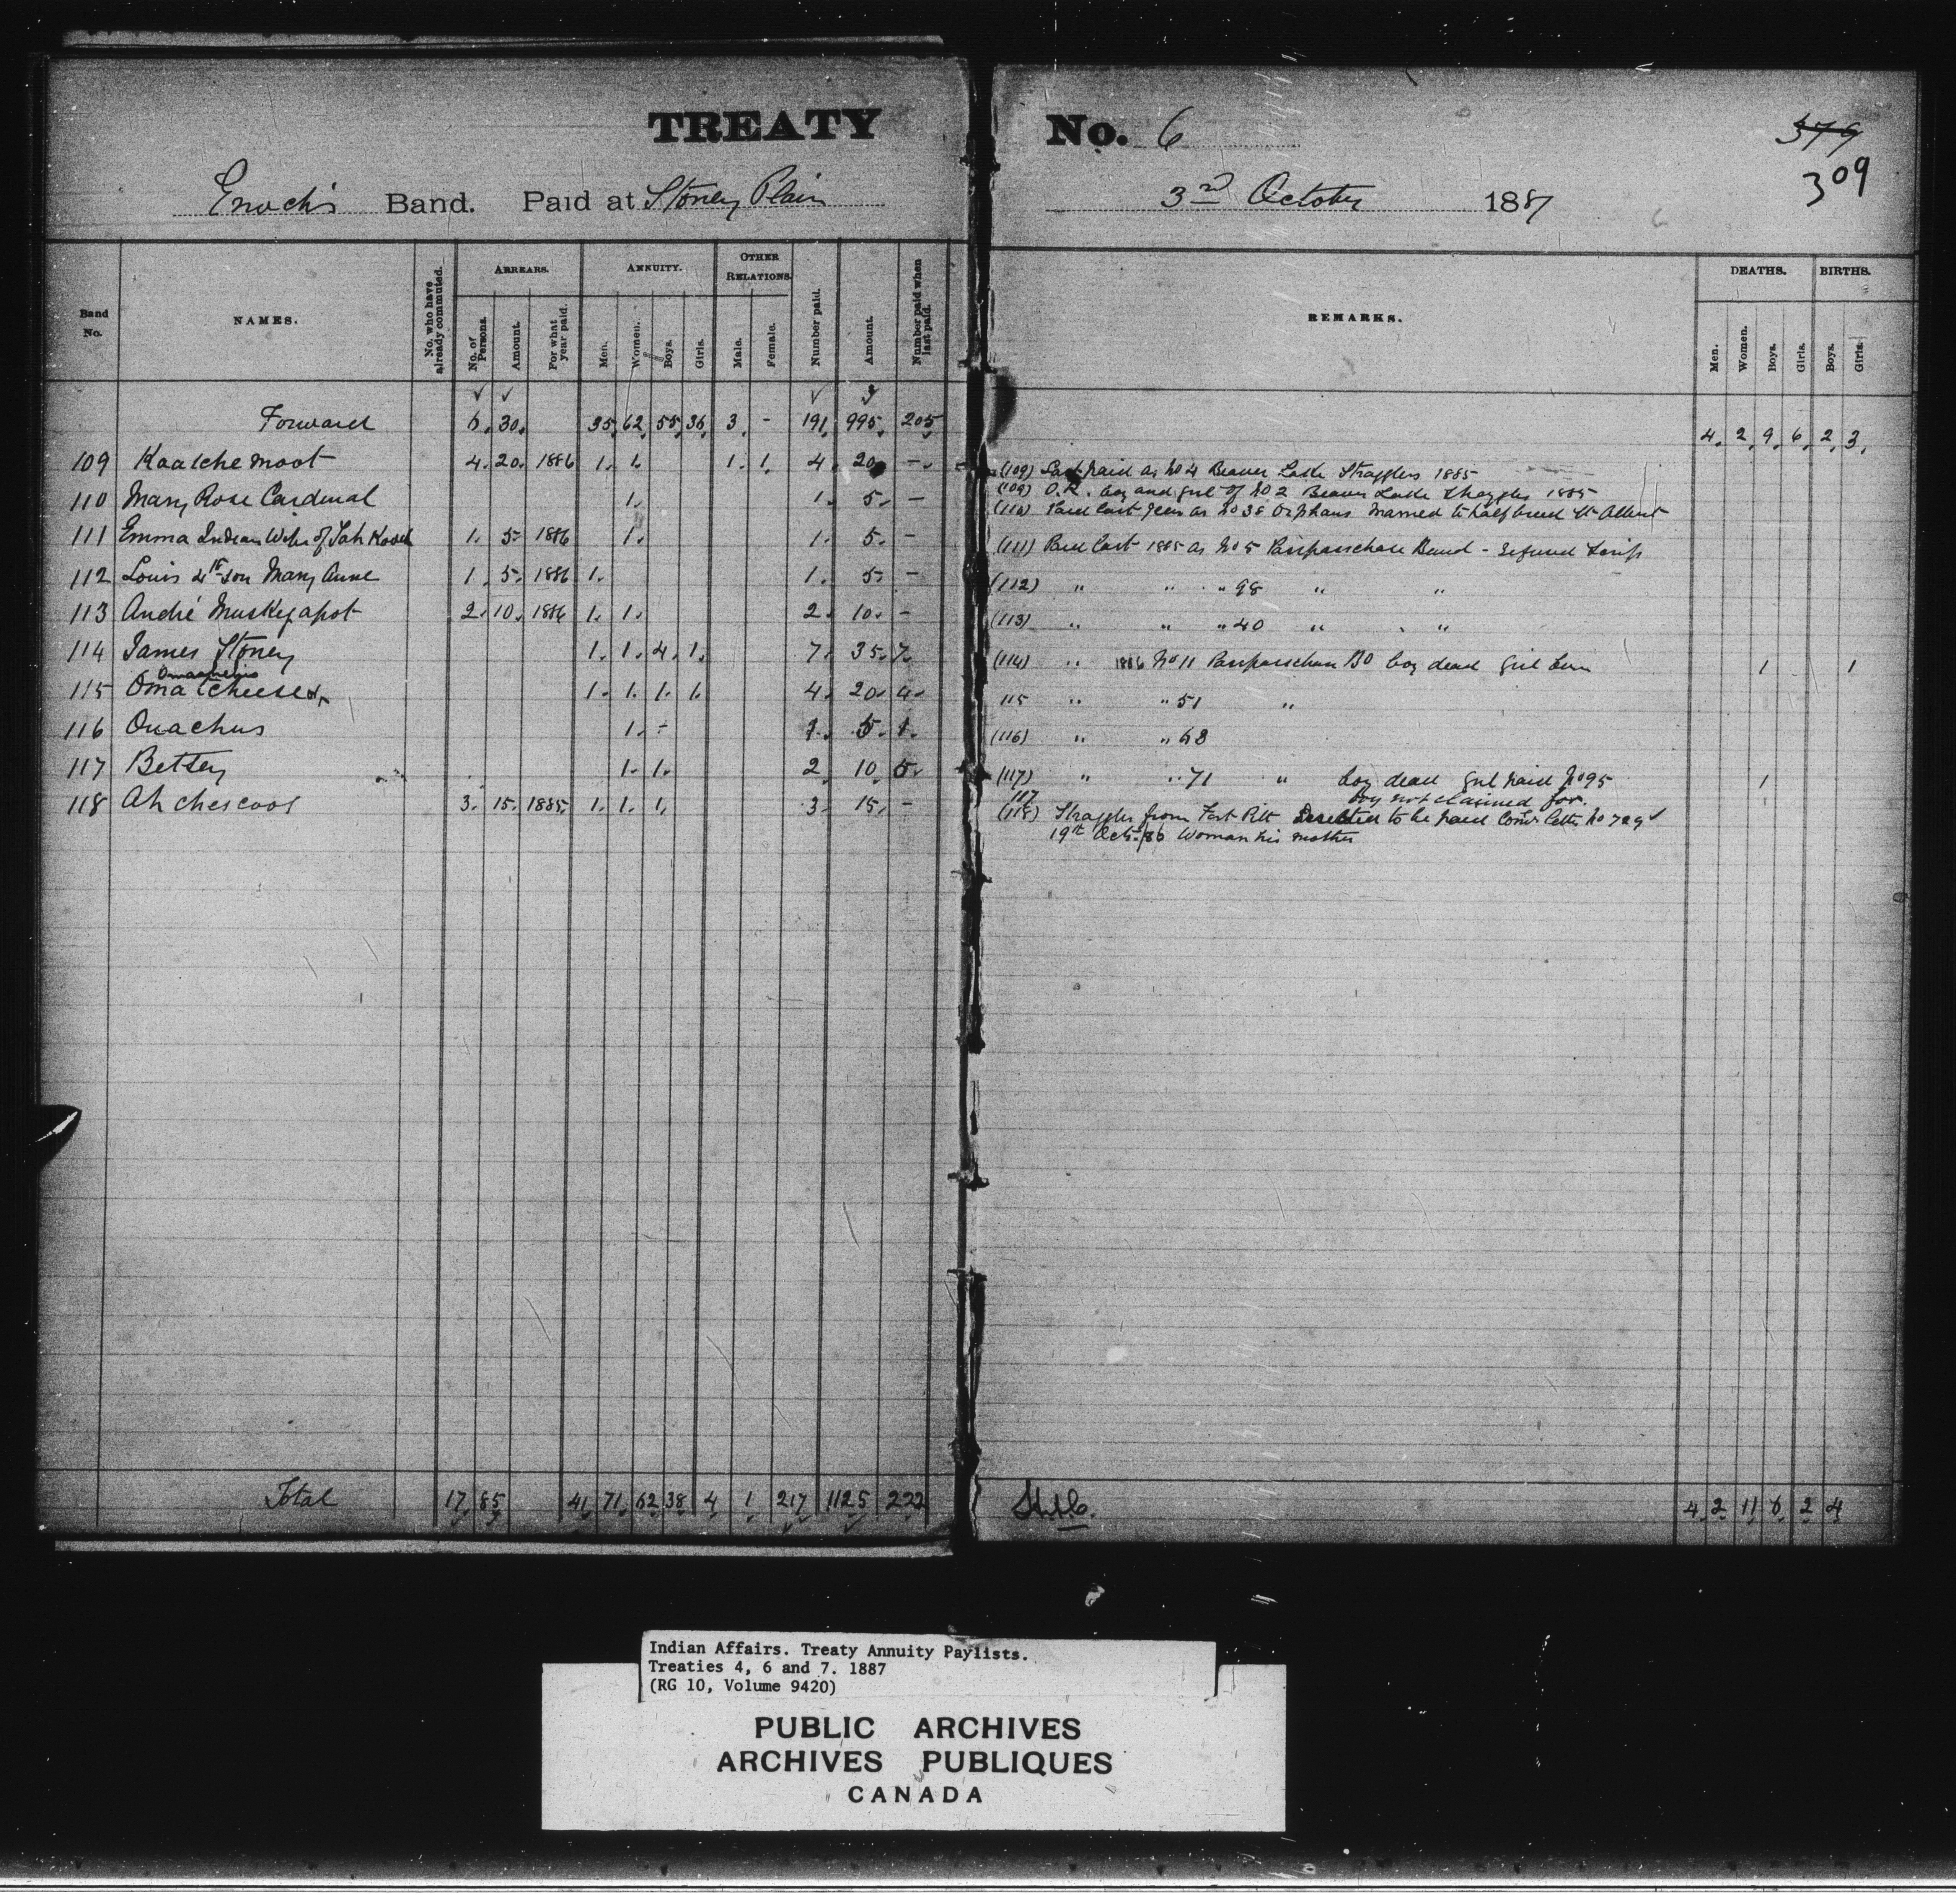 TREATY No. 6
379
309
Enoch's Band. Paid at Stoney Plain 3rd October 1887
Band No. NAMES. No. who have already commuted. ARREARS. No. of Persons. Amount. For what year paid. ANNUITY. Men. Women. Boys. Girls. OTHER RELATIONS. Male. Female. Number paid. Amount. Number paid when last paid. REMARKS. DEATHS. Men. Women. Boys. Girls. BIRTHS. Boys. Girls.
Forward 6. 30. 35. 62. 55. 36. 3. - 191. 995. 205 4. 2. 9. 6. 2. 3.
109 Kaatchemoot 4. 20. 1886 1. 1. 1. 1. 4. 20. - (109) Last paid as No 4 Beaver Lake Stragglers 1885
(109) O.R. boy and girl of No 2 Beaver Lake Stragglers 1885
110 Mary Rose Cardinal 1. 1. 5. - (110) Paid last year as No 38 Orphans married to half breed St Albert
111 Emma Indian Wife of 1. 5. 1886 1. 1. 5. - (111) Paid last 1885 as No 5 Passpasschase Band - refused Scrip
112 Louis 4th son Mary Anne 1. 5. 1886 1. 1. 5. - (112) " " " 98 " "
113 André Muskegapot 2. 10. 1886 1. 1. 2. 10. - (113) " " " 40 " "
114 James Stoney 1. 1. 4. 1. 7. 35. 7. (114) " 1886 No 11 Passpasschase BD boy dead girl born 1 1
115 1. 1. 1. 1. 4. 20. 4. 115 " " 51 "
116 Ouachus 1. - 1. 5. 1. (116) " " 63
117 Betsey 1. 1. 2. 10 5. (117) " " 71 " boy dead girl paid No 95 1
boy not claimed for.
118 Ahchescoos 3. 15. 1885. 1. 1. 1. 3. 15. - 117 (118) Straggler from Fort Pitt Directed to be paid Comr's letter No 729
19th Oct. 86 Woman his mother
Total 17. 85 41. 71. 62 38 4 1 217 1125 222 4. 2 11 6 2 4
Indian Affairs. Treaty Annuity Paylists.
Treaties 4, 6 and 7. 1887
(RG 10, Volume 9420)
PUBLIC ARCHIVES
ARCHIVES PUBLIQUES
CANADA